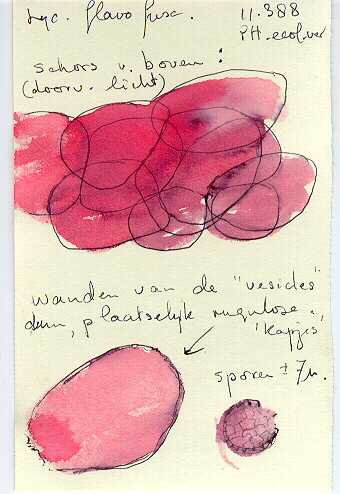 Lyc. flavofusc.
11.388
PH. ecol. ver
schors v. boven :
(doorv. licht)
wanden van de "vesicles"
dun, plaatselijk rugulose.,
'kapjes
sporen ± 7µ.